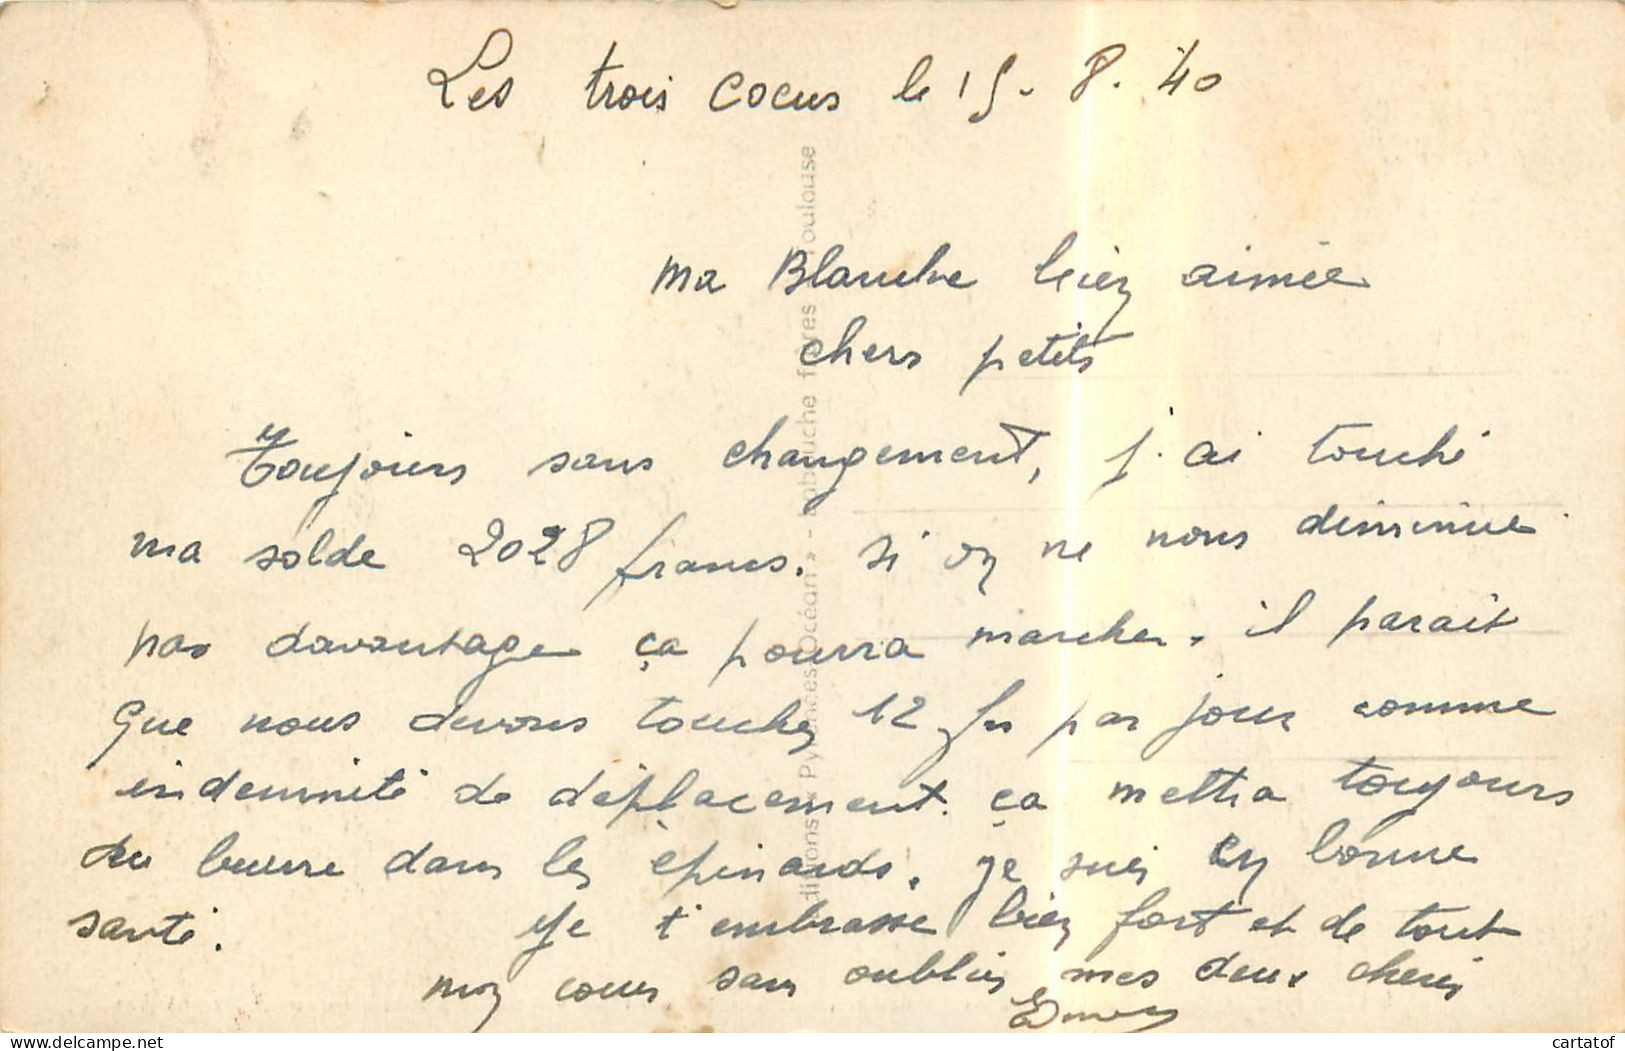 Les trois cocus le 15-8.40
ma Blanche bien aimée
chers petits
Toujours sans changement, j'ai touché
ma solde 2028 francs. si on ne nous diminue
pas davantage ça pourra marcher. il parait
que nous devons toucher 12 frs par jour comme
indemnité de déplacement. ça mettra toujours
du beurre dans les épinards. je suis en bonne
santé. Je t'embrasse bien fort et de tout
mon cœur sans oublier mes deux cheris
Editions « Pyrénées-Océan » - Labouche frères Toulouse
cartatof